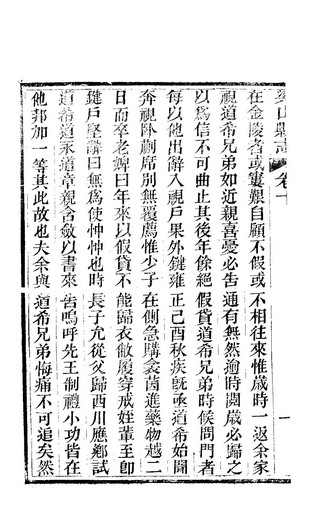 山縣志 卷十
在金陵者或寠艱自顧不假或不相往來惟歲時一返余家
視道希兄弟如近親喜憂必告通有無然逾時閱歲必歸之
以爲信不可曲止其後年餘絕假貸道希兄弟時候問門者
每以他出辭入視戶果外鍵雍正己酉秋疾旣亟道希始聞
奔視臥劘席別無覆薦惟少子在側急購衾茵進藥物越二
日而卒老婢曰年來以假貸不能歸衣敝履穿戒姪輩至卽
鍵戶堅諱曰無爲使忡忡也時長子允從父歸西川應鄉試
道希道永道章親含斂以書來告嗚呼先王制禮小功皆在
他邦加一等其此故也夫余與道希兄弟悔痛不可追矣然